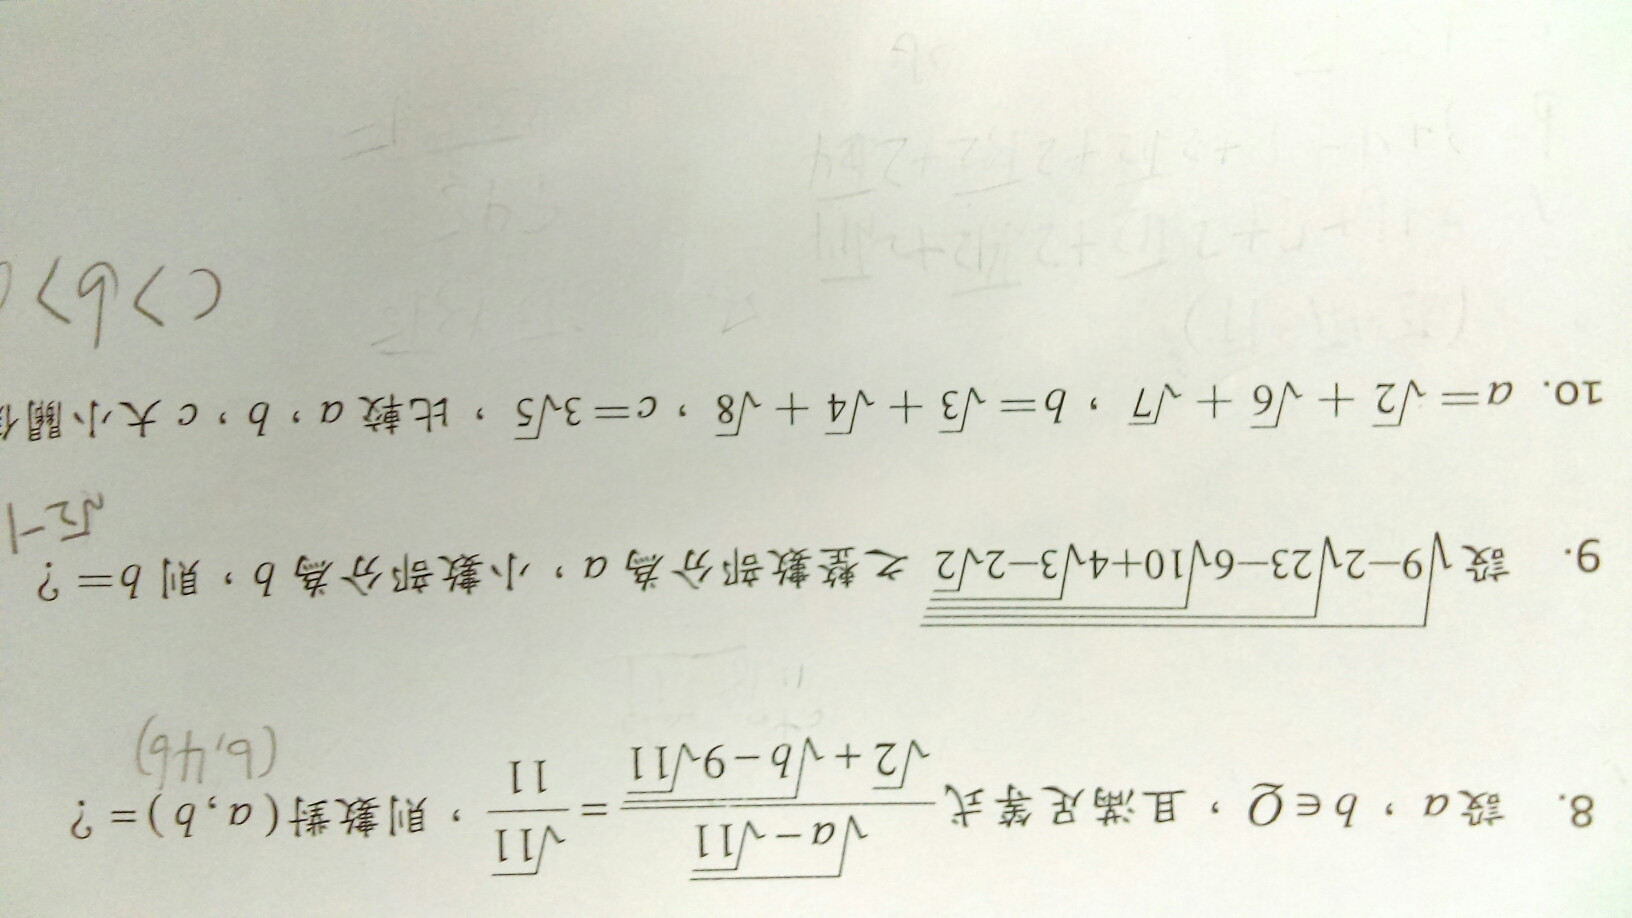 8. 設a,b∈Q,且滿足等式 √(a-√11) / (√2+√(b-9√11)) = √11 / 11,則數對(a,b)=?
(6,46)
9. 設√(9-2√(23-6√(10+4√(3-2√2)))) 之整數部分為a,小數部分為b,則b=?
√2-1
10. a=√2+√6+√7,b=√3+√4+√8,c=3√5,比較a,b,c大小關
c>b>